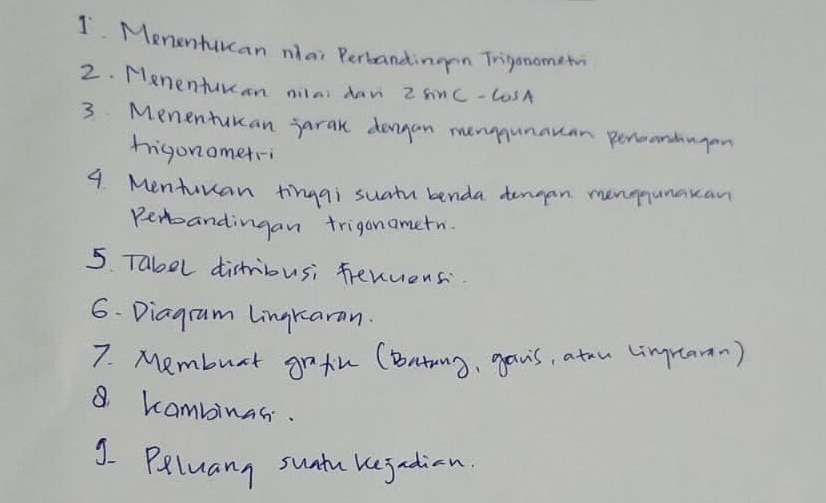 1. Menentukan nilai Perbandingan Trigonometri
2. Menentukan nilai dari 2 sin C - Cos A
3. Menentukan jarak dengan menggunakan perbandingan
trigonometri
4. Mentukan tinggi suatu benda dengan menggunakan
Perbandingan trigonometri.
5. Tabel distribusi frekuensi.
6. Diagram Lingkaran.
7. Membuat grafik (Batang, garis, atau Lingkaran)
8. kombinasi.
9. Peluang suatu kejadian.